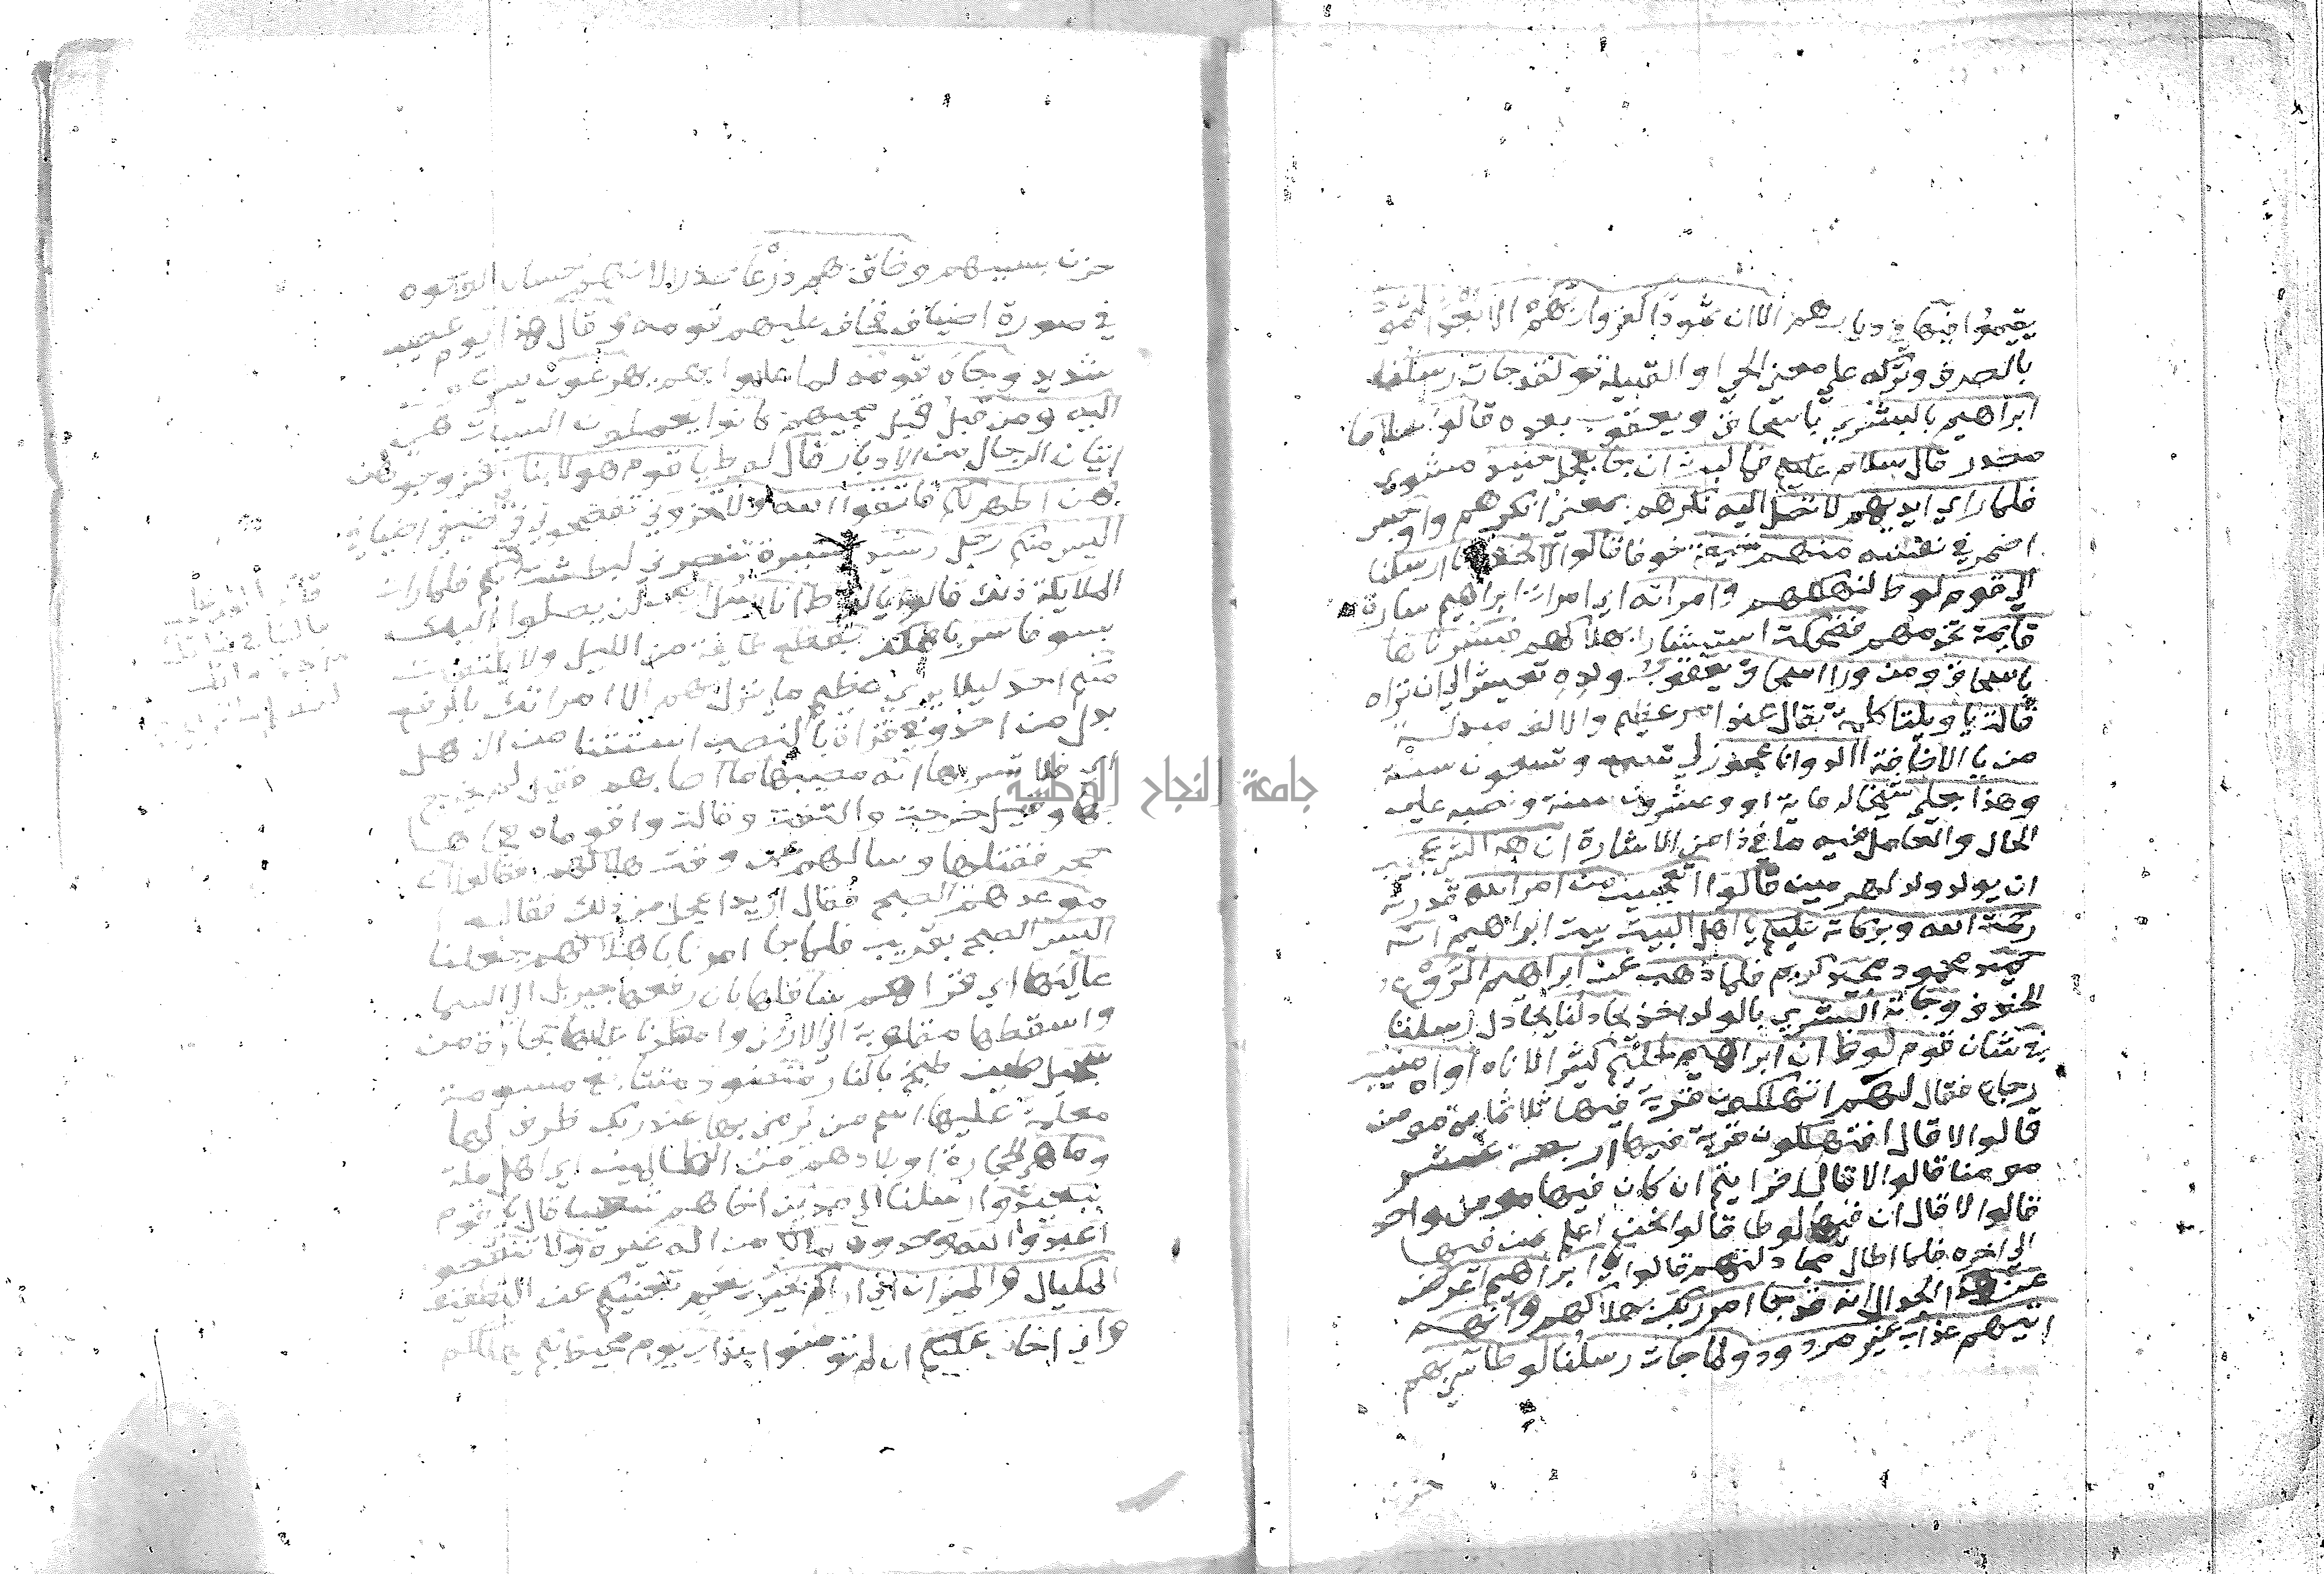 يقيموا فيها في ديارهم الا ان ثمودا كفروا ربهم الا بعدا لثمود
بالصرف وتركه على معنى الحي او القبيلة و لقد جات رسلنا
ابراهيم بالبشرى باسحاق ويعقوب بعده قالوا سلاما
مصدر قال سلام عليكم فما لبث ان جا بعجل حنيذ مشوى
فلما راي ايديهم لا تصل اليه نكرهم بمعنى انكرهم واوجس
اضمر في نفسه منهم خيفة خوفا قالوا لا تخف انا ارسلنا
الى قوم لوط لنهلكهم وامراته اي امرات ابراهيم سارة
قايمة تخدمهم فضحكت استبشارا بهلاكهم فبشرناها
باسحاق ومن ورا اسحاق يعقوب ولده تعيش الى ان تراه
قالت يا ويلتا كلمة تقال عند امر عظيم والالف مبدلة
من يا الاضافة االد وانا عجوز لي تسع وتسعون سنة
وهذا بعلي شيخا له ماية او وعشرون سنة ونصبه على
الحال والعامل فيه ما في ذا من الاشارة ان هذا لشي عجيب
ان يولد ولد لهرمين قالوا اتعجبين من امر الله قدرته
رحمة الله وبركاته عليكم يا اهل البيت بيت ابراهيم انه
حميد محمود مجيد كريم فلما ذهب عن ابراهيم الروع
الخوف وجاته البشرى بالولد اخذ يجادلنا يجادل رسلنا
في شان قوم لوط ان ابراهيم لحليم كثير الاناه اواه منيب
رجاع فقال لهم اتهلكون قرية فيها ثلاثماية مومن
قالوا لا قال افتهلكون قرية فيها اربعة عشر
مومنا قالوا لا قال افرايتم ان كان فيها مومن واحد
قالوا لا قال ان فيها لوطا قالوا نحن اعلم بمن فيها
الى اخره فلما اطال مجادلتهم قالوا يا ابراهيم اعرض
عن هذا الجدال انه قد جا امر ربك بهلاكهم وانهم
اتيهم عذاب غير مردود ولما جات رسلنا لوطا سي بهم
حزن
حزن بسببهم وضاق بهم ذرعا صدرا لانهم حسان الوجوه
في صورة اضياف فخاف عليهم قومه وقال هذا يوم عصيب
شديد وجاه قومه لما علموا بهم يهرعون يسرعون
اليه ومن قبل قبل مجيهم كانوا يعملون السيات هي
اتيان الرجال من الادبار قال لوط يا قوم هولا بناتي فتزوجوهن
هن اطهر لكم فاتقوا الله ولا تخزوني تفضحوني في ضيفي اضيافي
اليس منكم رجل رشيد
الملايكة ذلك قالوا يا لوط انا رسل ربك لن يصلوا اليك
بسو فاسر باهلك بقطع طايفة من الليل ولا يلتفت
منكم احد ليلا يرى عظيم ما ينزل بهم الا امراتك بالرفع
بدل من احد وفي قراة بالنصب استثنا من الاهل
اي فلا تسر بها انه مصيبها ما اصابهم فقيل لم يخرج
بها وقيل خرجت والتفتت وقالت واقوماه فجاها
حجر فقتلها وسالهم عن وقت هلاكهم فقالوا ان
موعدهم الصبح فقال اريد اعجل من ذلك فقالوا
اليس الصبح بقريب فلما جا امرنا باهلاكهم جعلنا
عاليها اي قراهم سافلها بان رفعها جبريل الى السما
واسقطها مقلوبة الى الارض وامطرنا عليها حجارة من
سجيل طين طبخ بالنار منضود متتابع مسومة
معلمة عليها اسم من يرمى بها عند ربك ظرف لها
وما هي الحجارة او بلادهم من الظالمين اي اهل مكة
ببعيد وارسلنا الى مدين اخاهم شعيبا قال يا قوم
اعبدوا الله وحدوه مالكم من اله غيره ولا تنقصوا
المكيال والميزان اني اراكم بخير نعمة تغنيكم عن التطفيف
واني اخاف عليكم ان لم تومنوا عذاب يوم محيط بكم يهلككم
جامعة النجاح الوطنية